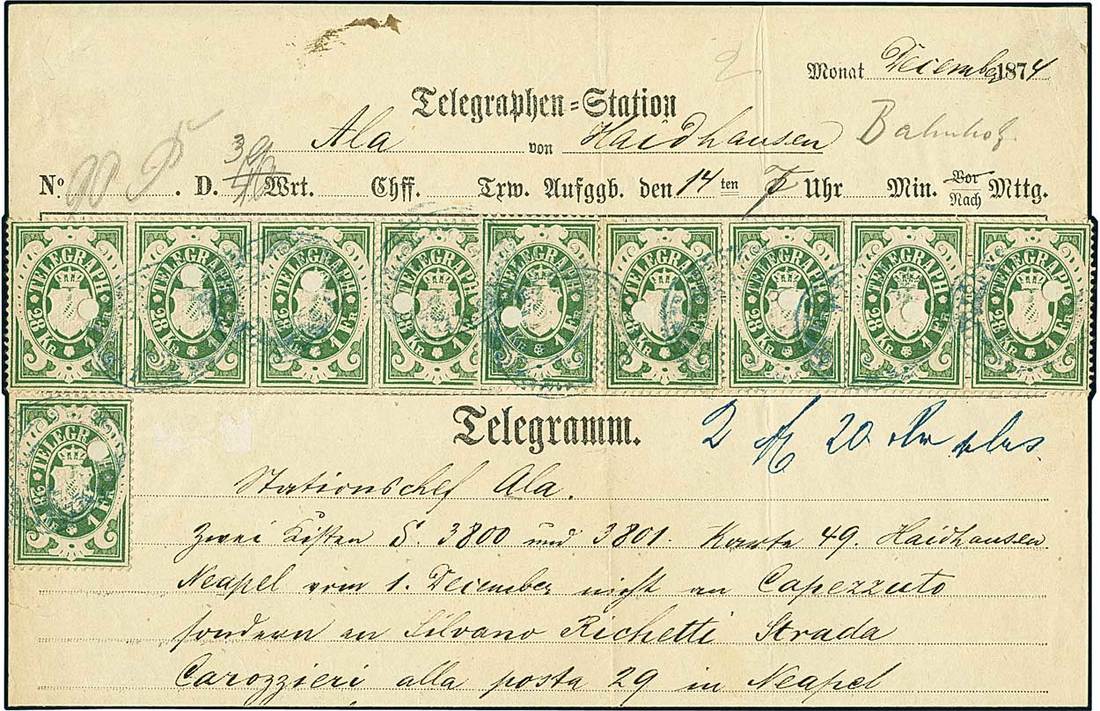 Monat December 1874
Telegraphen=Station
Ala von Haidhausen Bahnhof
No . D. Wrt. Chff. Txw. Aufggb. den 14 ten Uhr Min. Vor Nach Mttg.
TELEGRAPH 28 Kr 1 Fr TELEGRAPH 28 Kr 1 Fr TELEGRAPH 28 Kr 1 Fr TELEGRAPH 28 Kr 1 Fr TELEGRAPH 28 Kr 1 Fr TELEGRAPH 28 Kr 1 Fr TELEGRAPH 28 Kr 1 Fr TELEGRAPH 28 Kr 1 Fr TELEGRAPH 28 Kr 1 Fr
Telegramm. 2 20
TELEGRAPH 28 Kr 1 Fr
Stationschef Ala.
Zwei Kisten S. 3800 und 3801. Karte 49. Haidhausen
Neapel vom 1. December nicht an Capezzuto
sondern an Silvano Richetti Strada
Carozzieri alla posta 29 in Neapel